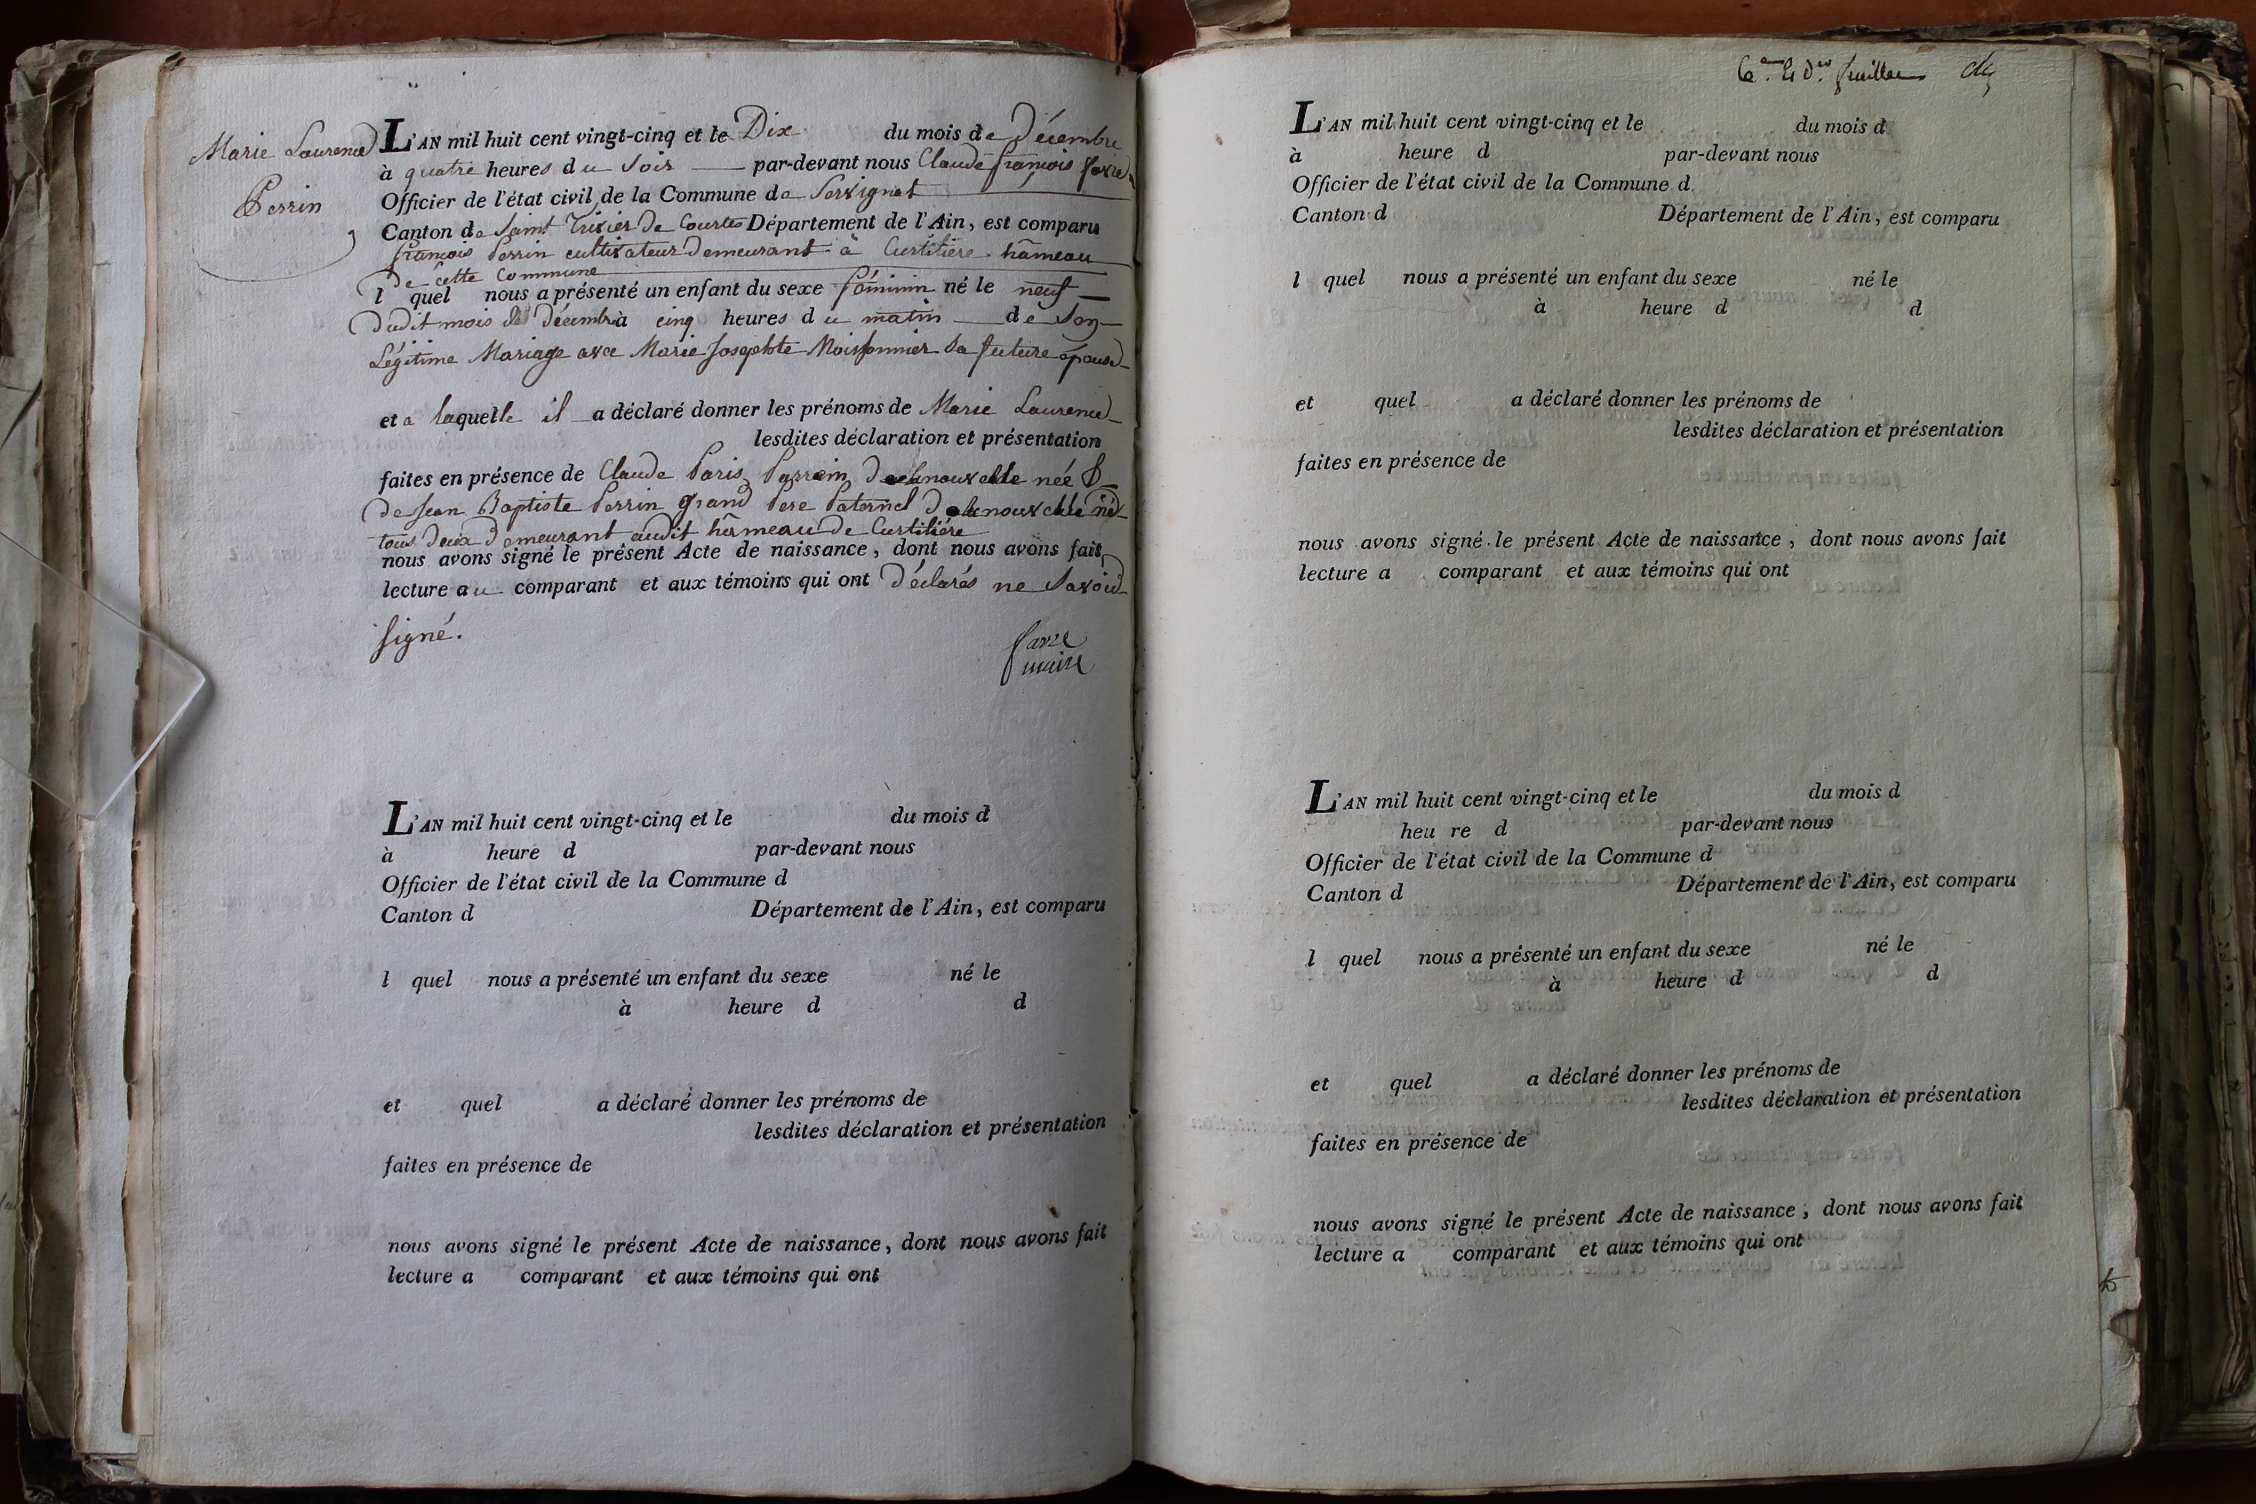 Marie Laurence
Perrin
L'AN mil huit cent vingt-cinq et le Dix du mois de Décembre
à quatre heures du Soir par-devant nous Claude françois favre
Officier de l'état civil de la Commune de Servignat
Canton de Saint Trivier De Courtes Département de l'Ain, est comparu
françois Perrin cultivateur Demeurant à Curtilière hâmeau
De Cette Commune
l quel nous a présenté un enfant du sexe féminin né le neuf
Dudit mois de Décembre à cinq heures du matin de Son
Légitime Mariage avec Marie Josephte Moissonnier Sa future épouse
et a laquelle il a déclaré donner les prénoms de Marie Laurence
lesdites déclaration et présentation
faites en présence de Claude Paris Parrain De la nouvelle née &
De Jean Baptiste Perrin Grand Pere Paternel De la nouvelle né
tous Deux Demeurant audit hâmeau De Curtilière
nous avons signé le présent Acte de naissance, dont nous avons fait
lecture au comparant et aux témoins qui ont Déclarés ne Savoir
Signé.
favre
maire
L'AN mil huit cent vingt-cinq et le du mois d
à heure d par-devant nous
Officier de l'état civil de la Commune d
Canton d Département de l'Ain, est comparu
l quel nous a présenté un enfant du sexe né le
à heure d d
et quel a déclaré donner les prénoms de
lesdites déclaration et présentation
faites en présence de
nous avons signé le présent Acte de naissance, dont nous avons fait
lecture a comparant et aux témoins qui ont
6e et der feuillet
L'AN mil huit cent vingt-cinq et le du mois d
à heure d par-devant nous
Officier de l'état civil de la Commune d
Canton d Département de l'Ain, est comparu
l quel nous a présenté un enfant du sexe né le
à heure d d
et quel a déclaré donner les prénoms de
lesdites déclaration et présentation
faites en présence de
nous avons signé le présent Acte de naissance, dont nous avons fait
lecture a comparant et aux témoins qui ont
L'AN mil huit cent vingt-cinq et le du mois d
heu re d par-devant nous
Officier de l'état civil de la Commune d
Canton d Département de l'Ain, est comparu
l quel nous a présenté un enfant du sexe né le
à heure d d
et quel a déclaré donner les prénoms de
lesdites déclaration et présentation
faites en présence de
nous avons signé le présent Acte de naissance, dont nous avons fait
lecture a comparant et aux témoins qui ont